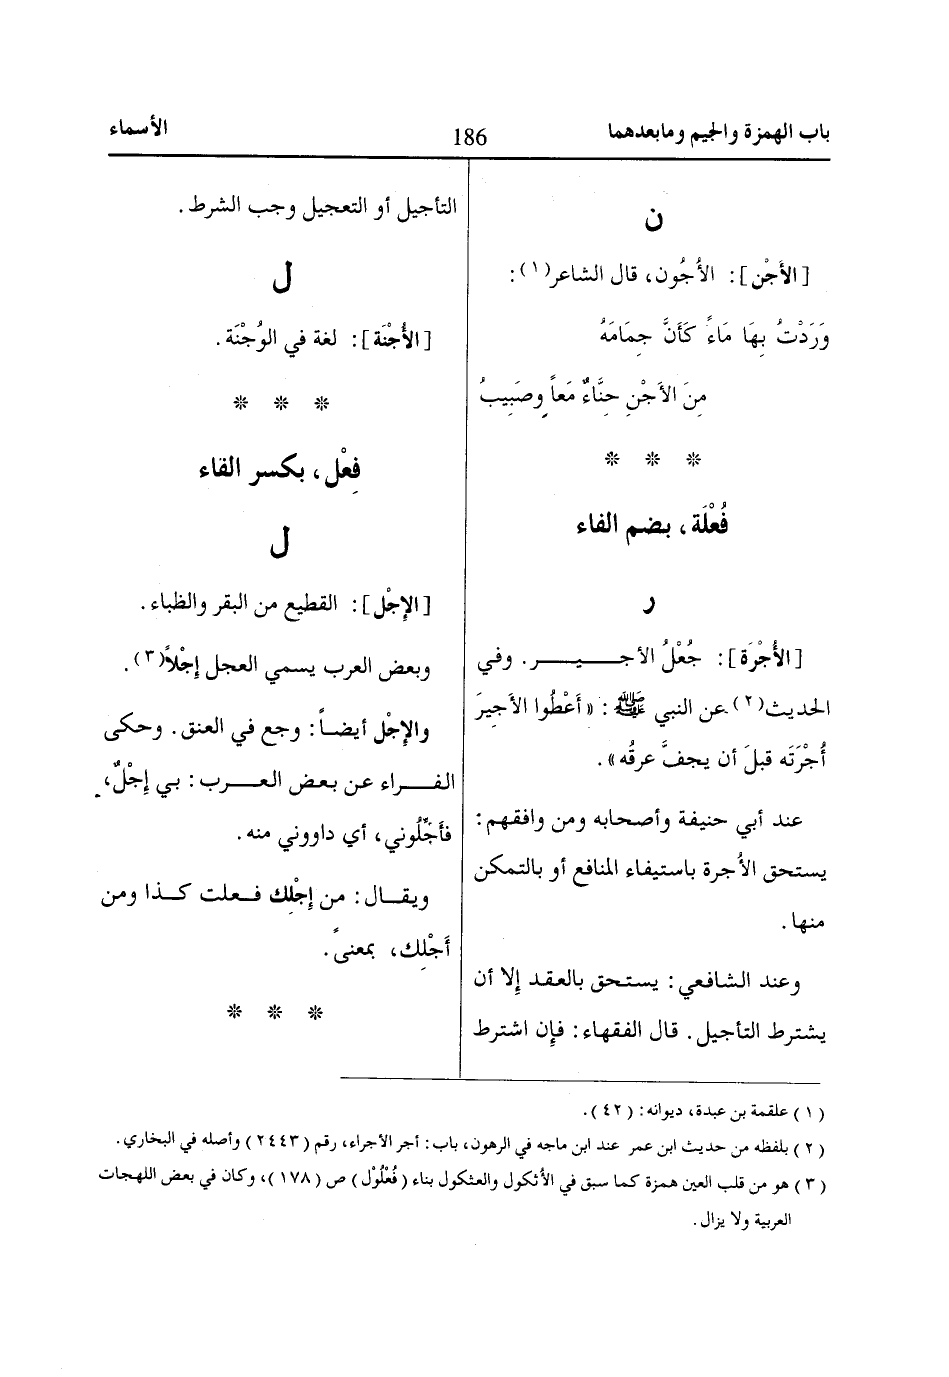 باب الهمزة والجيم ومابعدهما
186
الأسماء
ن
[الأَجْن]: الأُجُون، قال الشاعر(١):
وَرَدْتُ بِهَا مَاءً كَأَنَّ جِمَامَهُ
مِنَ الأَجْنِ حِنَّاءٌ مَعاً وصَبِيبُ
❊ ❊ ❊
فُعْلَة، بضم الفاء
ر
[الأُجْرَة]: جُعْلُ الأجـــيـــر. وفي
الحديث(٢) عن النبي ﷺ: «أَعْطُوا الأَجيرَ
أُجْرَتَه قبلَ أن يجفَّ عرقُه».
عند أبي حنيفة وأصحابه ومن وافقهم:
يستحق الأُجرة باستيفاء المنافع أو بالتمكن
منها.
وعند الشافعي: يستحق بالعقد إِلا أن
يشترط التأجيل. قال الفقهاء: فإِن اشترط
التأجيل أو التعجيل وجب الشرط.
ل
[الأُجْنَة]: لغة في الوُجْنَة.
❊ ❊ ❊
فِعْل، بكسر الفاء
ل
[الإِجْل]: القطيع من البقر والظباء.
وبعض العرب يسمي العجل إِجْلاً(٣).
والإِجْل أيضـاً: وجع في العنق. وحكى
الفـــراء عن بعض العـــرب: بي إِجْلٌ،
فأَجِّلُوني، أي داووني منه.
ويقـال: من إِجْلِك فـعلت كـذا ومن
أَجْلِك، بمعنىً.
❊ ❊ ❊
(١) علقمة بن عبدة، ديوانه: (٤٢).
(٢) بلفظه من حديث ابن عمر عند ابن ماجه في الرهون، باب: أجر الأجراء، رقم (٢٤٤٣) وأصله في البخاري.
(٣) هو من قلب العين همزة كما سبق في الأثكول والعثكول بناء (فُعْلُوْل) ص (١٧٨)، وكان في بعض اللهجات
العربية ولا يزال.